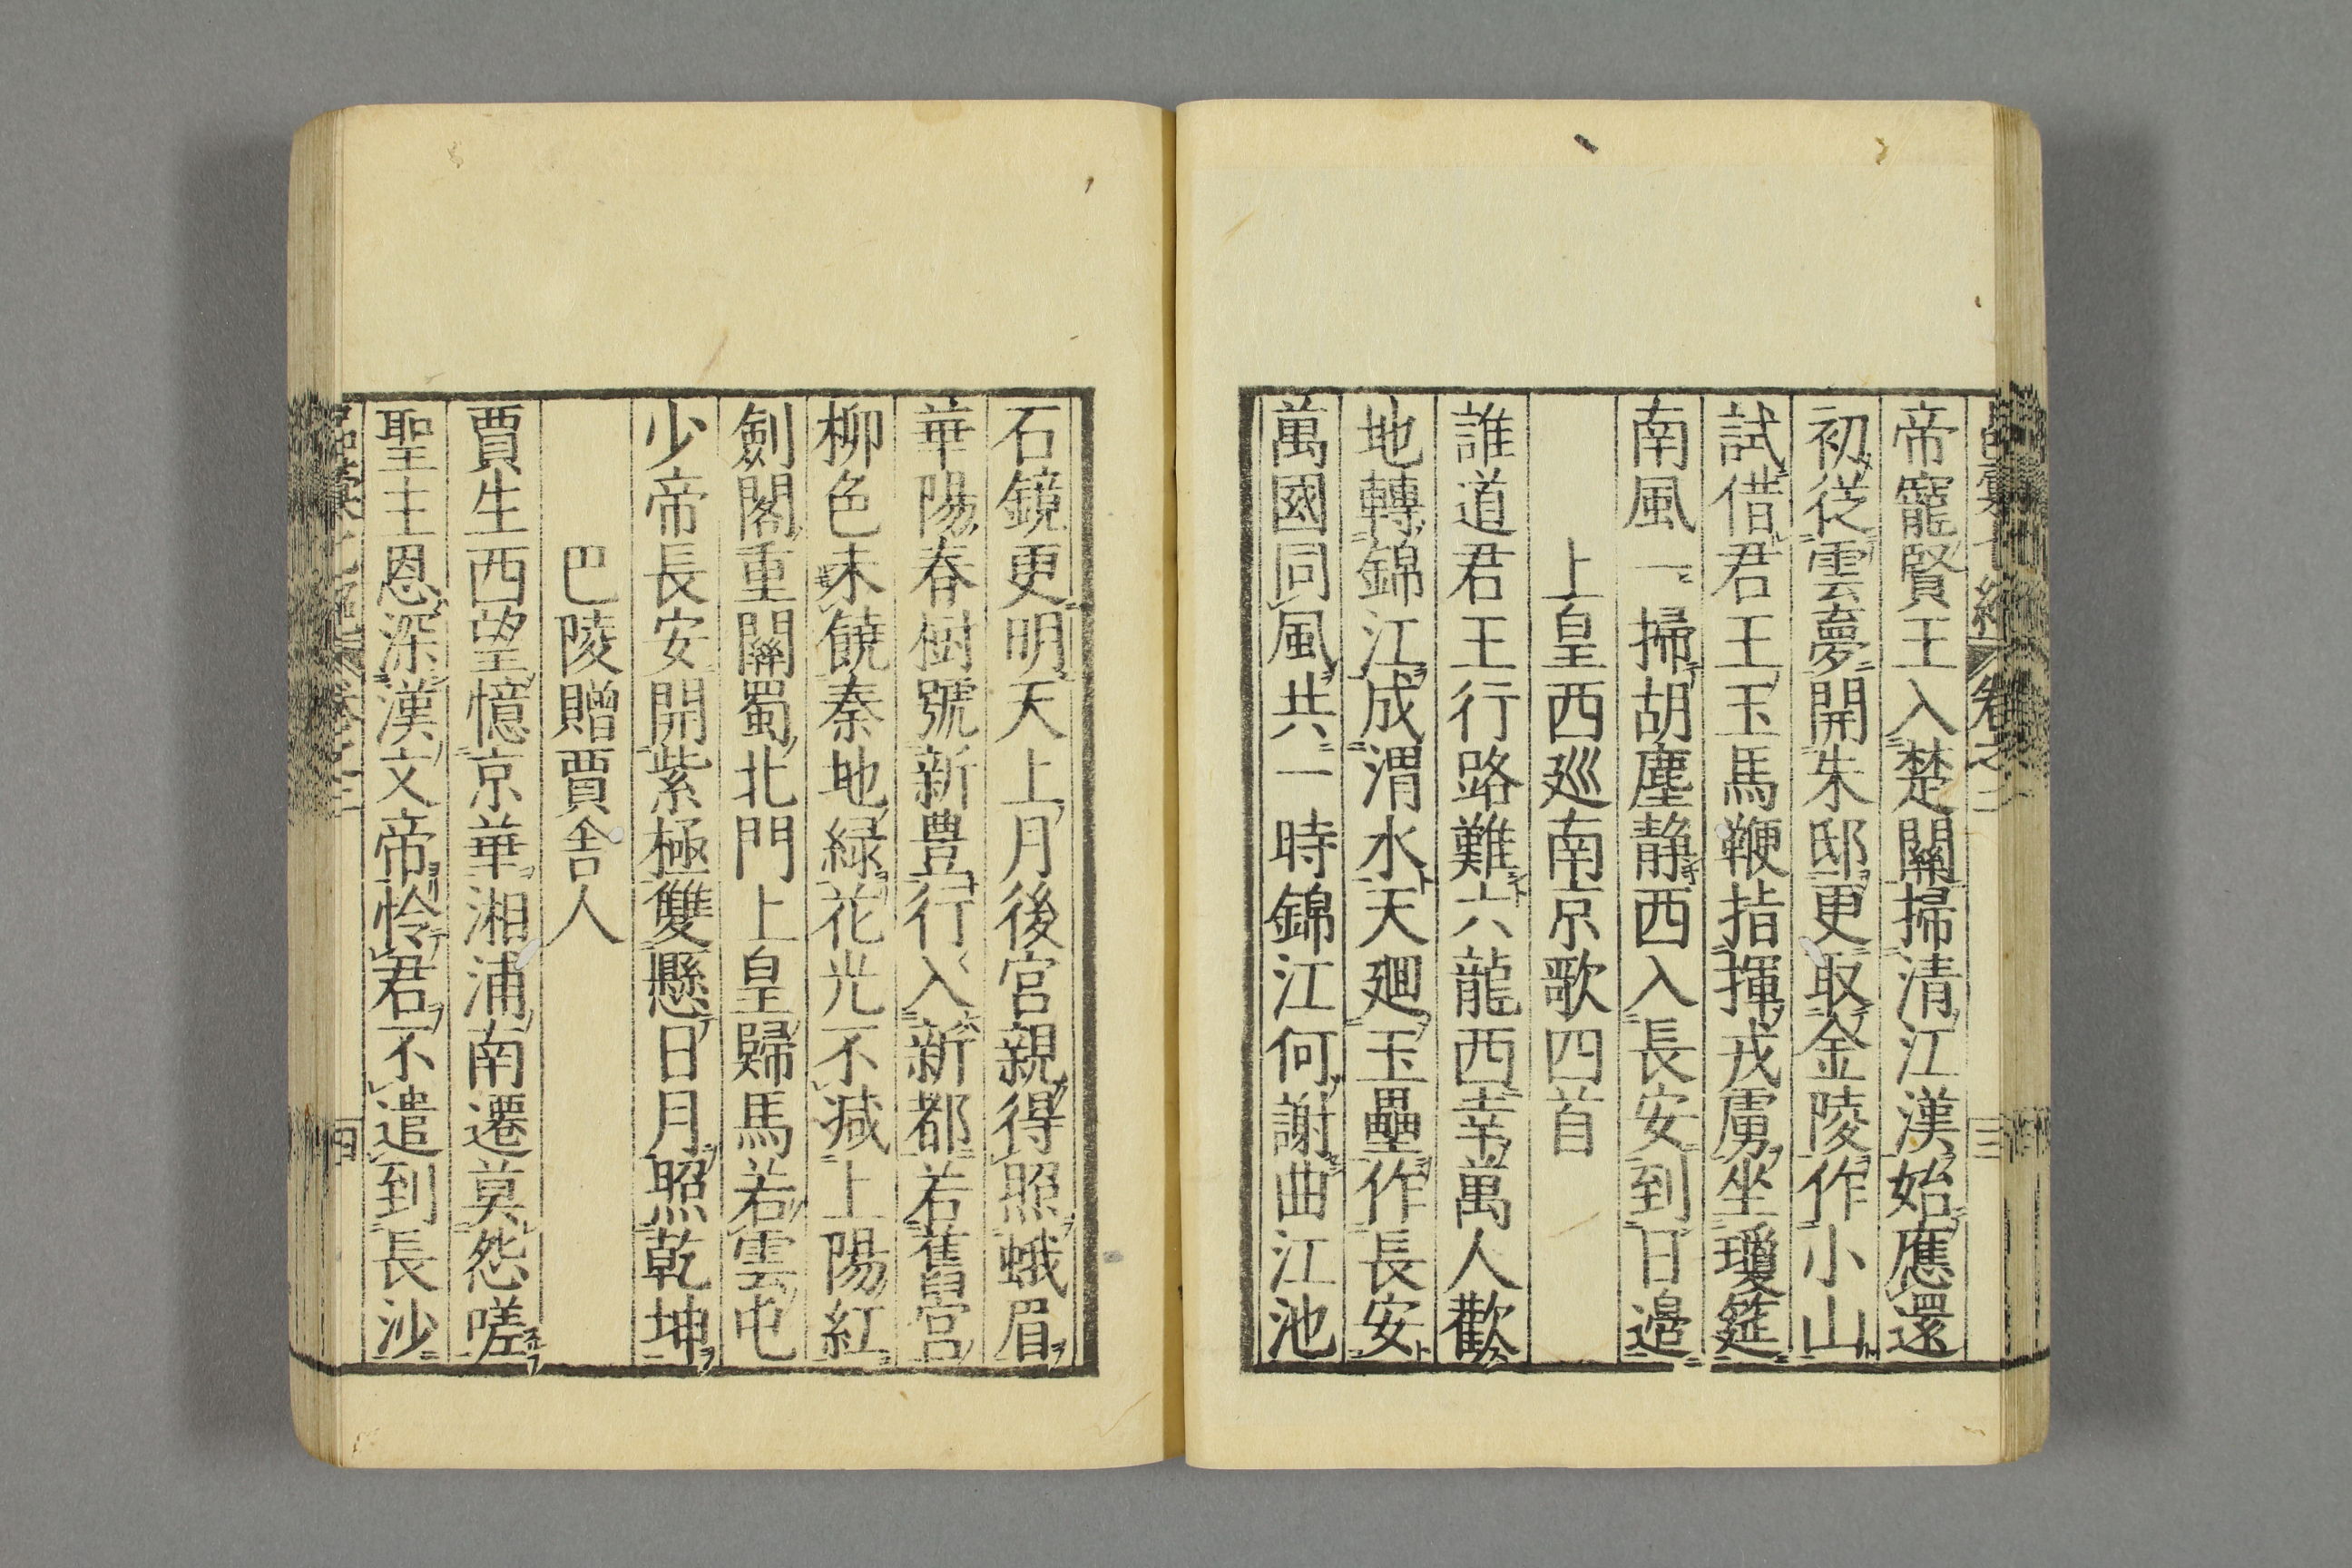 帝寵賢王入楚關掃清江漢始應還
初從雲夢開朱邸更取金陵作小山
試借君王玉馬鞭指揮戎虜坐瓊筵
南風一掃胡塵静西入長安到日邉
上皇西廵南京歌四首
誰道君王行路難六龍西幸萬人歡
地轉錦江成渭水天廻玉壘作長安
萬國同風共一時錦江何謝曲江池
石鏡更明天上月後宮親得照蛾眉
華陽春樹號新豊行入新都若舊宮
柳色未饒秦地緑花光不减上陽紅
劍閣重關蜀北門上皇歸馬若雲屯
少帝長安開紫極雙懸日月照乾坤
巴陵贈賈舎人
賈生西望憶京華湘浦南遷莫怨嗟
聖主恩深漢文帝怜君不遣到長沙
四